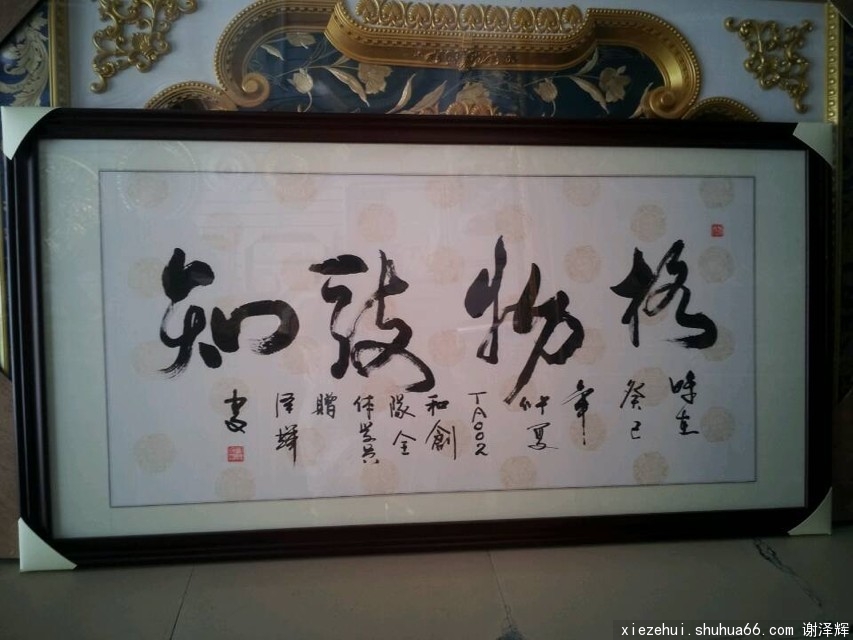 格物致知
時在
癸巳
年
仲夏
TA002
和創
隊全
体学员
贈
泽輝
书
xiezehui.shuhua66.com 谢泽辉